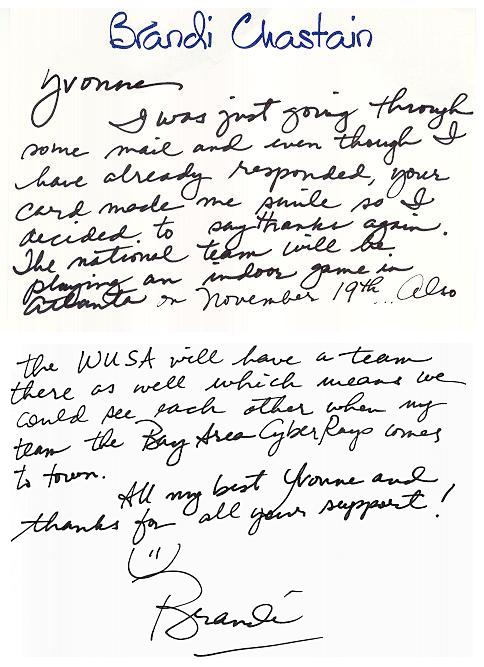 Brandi Chastain
Yvonne
I was just going through
some mail and even though I
have already responded, your
card made me smile so I
decided to say thanks again.
The national team will be
playing an indoor game in
Atlanta on November 19th... Also
the WUSA will have a team
there as well which means we
could see each other when my
team the Bay Area CyberRays comes
to town.
All my best Yvonne and
thanks for all your support!
Brandi